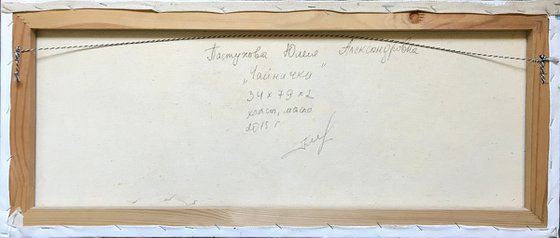 Пастухова Юлия Александровна
"Чайнички"
34 x 79 x 2
холст, масло
2015 г